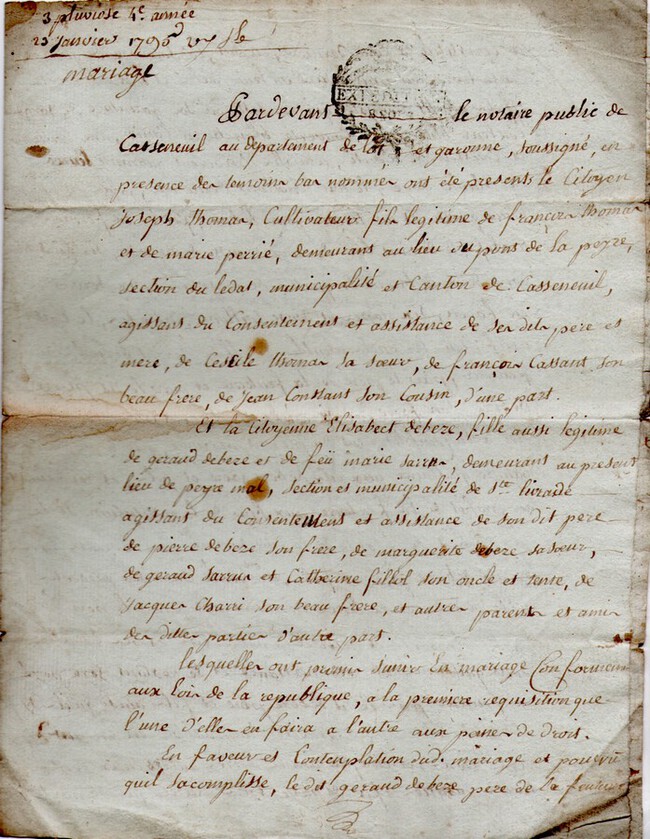 3 pluviose 4e. année
23 janvier 1795
mariage
EXPEDITION
Pardevant le notaire public de
Casseneuil au departement de lot et garonne, soussigné, en
presence des temoins bas nommes ont été presents le Citoyen
joseph thomas, Cultivateur fils legitime de françois thomas
et de marie perrié, demeurans au lieu du pons de la peyre,
section du ledat, municipalité et Canton de Casseneuil,
agissans du Consentement et assistance de ses dits pere et
mere, de Cecile thomas sa soeur, de françois Cassant son
beau frere, de jean Constant son Cousin, d'une part.
Et la Citoyenne Elisabeet debeze, fille aussi legitime
de geraud debeze et de feu marie sarrus, demeurans au present
lieu de peyre mal, section et municipalité de Ste livrade
agissans du Consentement et assistance de son dit pere
de pierre debeze son frere, de marguerite debeze sa soeur,
de geraud sarrus et Catherine filhol son oncle et tente, de
jacques Charri son beau frere, et autres parens et amis
des dittes parties d'autre part.
lesquelles ont promis s'unir En mariage Conformement
aux lois de la republique, a la premiere requisition que
l'une d'elles en faira a l'autre aux peines de droit.
En faveur et Contenplation dud. mariage et pourvu
quil sacomplisse, le dit geraud debeze pere de la future